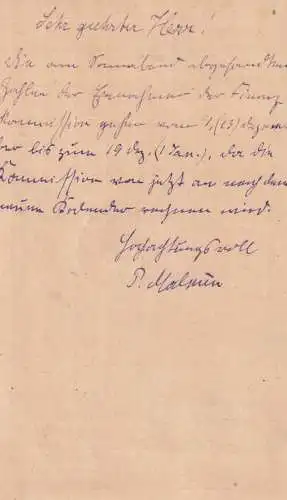 Sehr geehrter Herr!
Die am Sonnabend abgesandten
Zahlen der Einnahmen der Finanz
kommission gehen vom 1. (13) Dezem
ber bis zum 19 Dez. (1 Jan.), da die
Kommission von jetzt an nach dem
neuen Kalender rechnen wird.
Hochachtungsvoll
P.